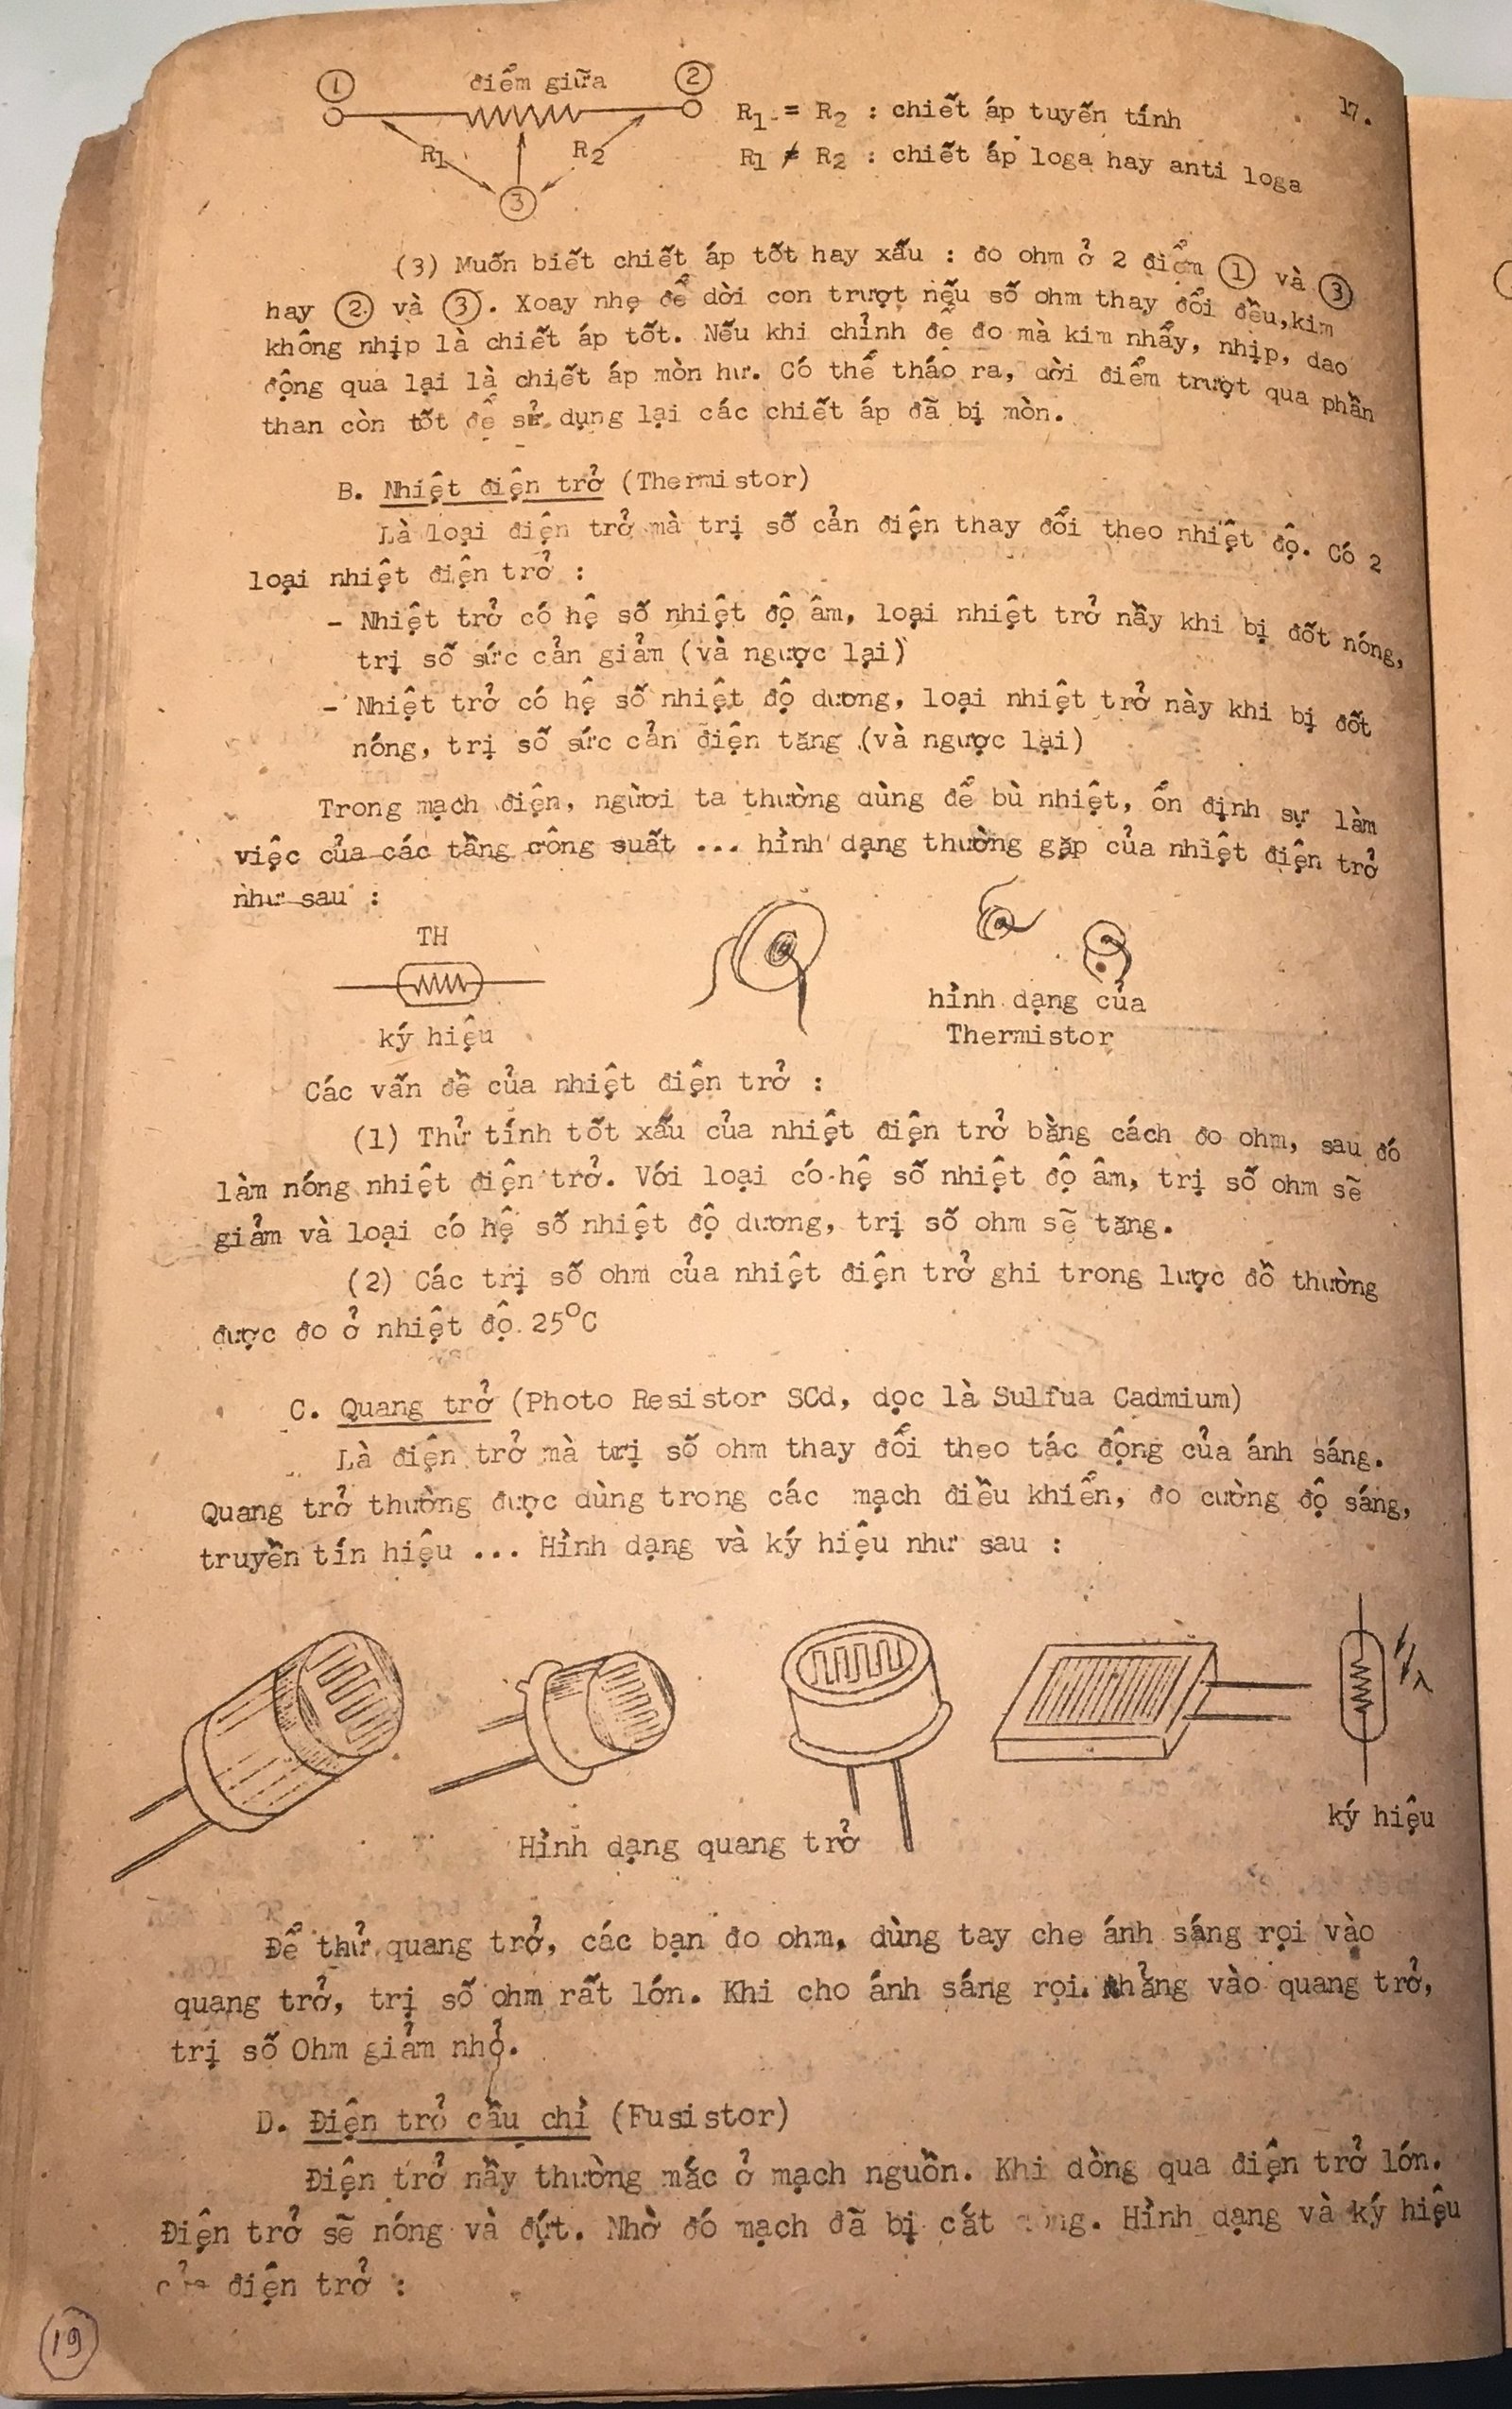 17.
① điểm giữa ②
R1 = R2 : chiết áp tuyến tính
R1 ≠ R2 : chiết áp loga hay anti loga
R1 R2
③
(3) Muốn biết chiết áp tốt hay xấu : đo ohm ở 2 điểm ① và ③
hay ② và ③. Xoay nhẹ để dời con trượt nếu số ohm thay đổi đều, kim
không nhịp là chiết áp tốt. Nếu khi chỉnh để đo mà kim nhẩy, nhịp, dao
động qua lại là chiết áp mòn hư. Có thể tháo ra, dời điểm trượt qua phần
than còn tốt để sử dụng lại các chiết áp đã bị mòn.
B. Nhiệt điện trở (Thermistor)
Là loại điện trở mà trị số cản điện thay đổi theo nhiệt độ. Có 2
loại nhiệt điện trở :
- Nhiệt trở có hệ số nhiệt độ âm, loại nhiệt trở nầy khi bị đốt nóng,
trị số sức cản giảm (và ngược lại)
- Nhiệt trở có hệ số nhiệt độ dương, loại nhiệt trở này khi bị đốt
nóng, trị số sức cản điện tăng (và ngược lại)
Trong mạch điện, người ta thường dùng để bù nhiệt, ổn định sự làm
việc của các tầng công suất ... hình dạng thường gặp của nhiệt điện trở
như sau :
TH
ký hiệu
hình dạng của
Thermistor
Các vấn đề của nhiệt điện trở :
(1) Thử tính tốt xấu của nhiệt điện trở bằng cách đo ohm, sau đó
làm nóng nhiệt điện trở. Với loại có hệ số nhiệt độ âm, trị số ohm sẽ
giảm và loại có hệ số nhiệt độ dương, trị số ohm sẽ tăng.
(2) Các trị số ohm của nhiệt điện trở ghi trong lược đồ thường
được đo ở nhiệt độ 25°C
C. Quang trở (Photo Resistor SCd, dọc là Sulfua Cadmium)
Là điện trở mà trị số ohm thay đổi theo tác động của ánh sáng.
Quang trở thường được dùng trong các mạch điều khiển, đo cường độ sáng,
truyền tín hiệu ... Hình dạng và ký hiệu như sau :
ký hiệu
Hình dạng quang trở
Để thử quang trở, các bạn đo ohm, dùng tay che ánh sáng rọi vào
quang trở, trị số ohm rất lớn. Khi cho ánh sáng rọi thẳng vào quang trở,
trị số Ohm giảm nhỏ.
D. Điện trở cầu chì (Fusistor)
Điện trở nầy thường mắc ở mạch nguồn. Khi dòng qua điện trở lớn.
Điện trở sẽ nóng và đứt. Nhờ đó mạch đã bị cắt . Hình dạng và ký hiệu
điện trở :
19